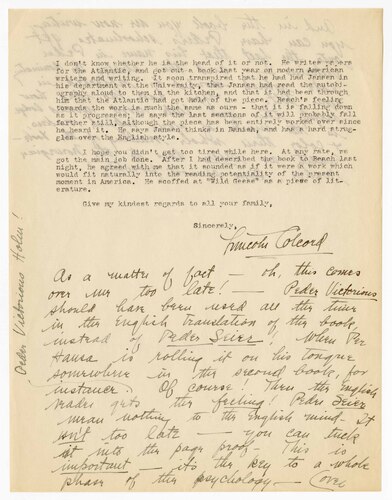 I don't know whether he is the head of it or not. He writes papers
for the Atlantic, and got out a book last year on modern American
writers and writing. It soon transpired that he had had Jansen in
his department at the University, that Jansen had read the autobi-
ography aloud to them in the kitchen, and that it had been through
him that the Atlantic had got hold of the piece. Beach's feeling
towards the work is much the same as ours - that it is falling down
as it progresses; he says the last sections of it will probably fall
further still, although the whole has been entirely worked over since
he heard it. He says Jansen thinks in Danish, and has a hard strug-
gles over the English style.
I hope you didn't get too tired while here. At any rate, we
got the main job done. After I had described the book to Beach last
night, he agreed with me that it sounded as if it were a work which
would fit naturally into the reading potentiality of the present
moment in America. He scoffed at "Wild Geese" as a piece of lit-
erature.
Give my kindest regards to all your family,
Sincerely,
Lincoln Colcord
As a matter of fact — oh, this comes
over me too late! — Peder Victorious
should have been used all the time
in the English translation of the book,
instead of Peder Seier! When Per
Hansa is rolling it on his tongue
somewhere in the second book, for
instance. Of course! Then the English
reader gets the feeling! Peder Seier
means nothing to the English mind. It
isn't too late — you can tuck
it into the page proof. This is
important — it's the key to a whole
phase of the psychology — (over
Peder Victorious Holm!